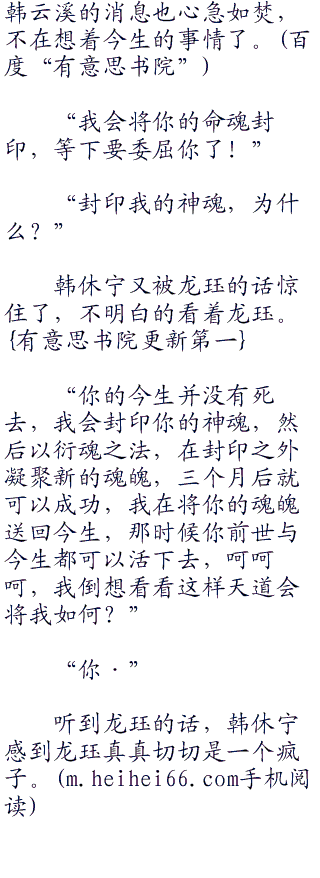 韩云溪的消息也心急如焚，
不在想着今生的事情了。(百
度“有意思书院”)
“我会将你的命魂封
印，等下要委屈你了！”
“封印我的神魂，为什
么？”
韩休宁又被龙珏的话惊
住了，不明白的看着龙珏。
{有意思书院更新第一}
“你的今生并没有死
去，我会封印你的神魂，然
后以衍魂之法，在封印之外
凝聚新的魂魄，三个月后就
可以成功，我在将你的魂魄
送回今生，那时候你前世与
今生都可以活下去，呵呵
呵，我倒想看看这样天道会
将我如何？”
“你·”
听到龙珏的话，韩休宁
感到龙珏真真切切是一个疯
子。(m.heihei66.com手机阅
读)